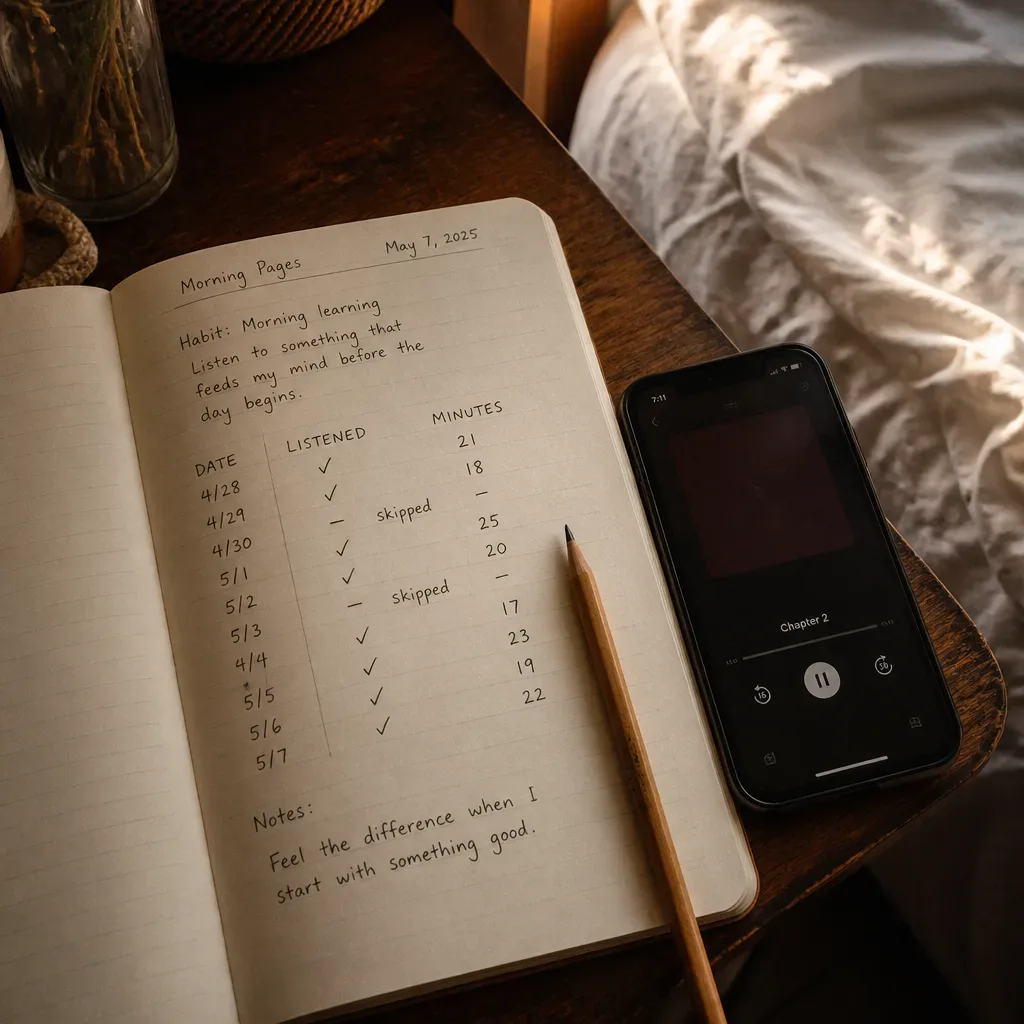 Morning Pages May 7, 2025
Habit: Morning learning
Listen to something that
feeds my mind before the
day begins.
DATE LISTENED MINUTES
4/28 ✓ 21
4/29 ✓ 18
4/30 – skipped –
5/1 ✓ 25
5/2 ✓ 20
5/3 – skipped –
4/4 ✓ 17
5/5 ✓ 23
5/6 ✓ 19
5/7 ✓ 22
Notes:
Feel the difference when I
start with something good.
7:11
Chapter 2
15